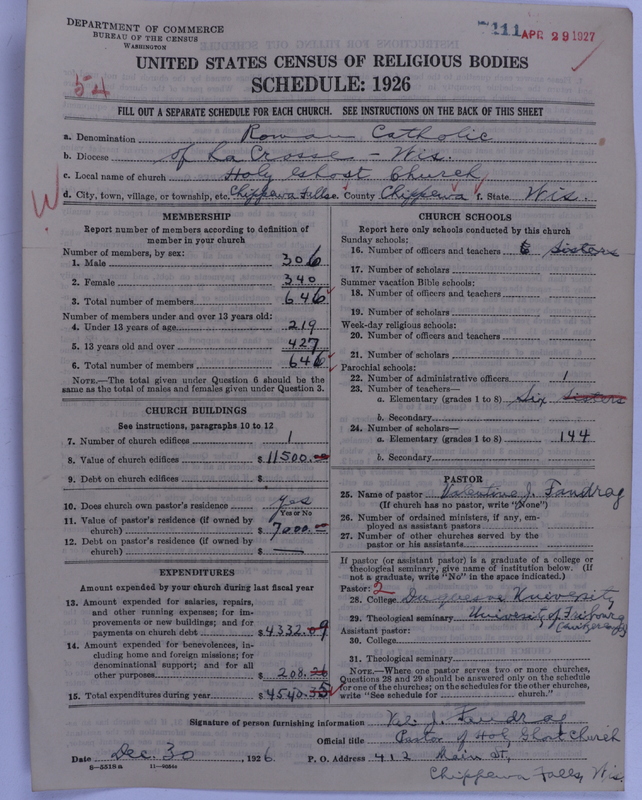 DEPARTMENT OF COMMERCE
BUREAU OF THE CENSUS
WASHINGTON
111 APR 29 1927
54
UNITED STATES CENSUS OF RELIGIOUS BODIES
SCHEDULE: 1926
FILL OUT A SEPARATE SCHEDULE FOR EACH CHURCH. SEE INSTRUCTIONS ON THE BACK OF THIS SHEET
a. Denomination Roman Catholic
b. Diocese of La Crosse - Wis.
c. Local name of church Holy Ghost Church
d. City, town, village, or township, etc. Chippewa Falls e. County Chippewa f. State Wis.
W
MEMBERSHIP
Report number of members according to definition of
member in your church
Number of members, by sex:
1. Male 306
2. Female 340
3. Total number of members 646
Number of members under and over 13 years old:
4. Under 13 years of age 219
5. 13 years old and over 427
6. Total number of members 646
NOTE.—The total given under Question 6 should be the
same as the total of males and females given under Question 3.
CHURCH BUILDINGS
See instructions, paragraphs 10 to 12
7. Number of church edifices 1
8. Value of church edifices $ 11500.
9. Debt on church edifices $
10. Does church own pastor's residence? Yes
Yes or No
11. Value of pastor's residence (if owned by
church) $ 7000.
12. Debt on pastor's residence (if owned by
church) $ —
EXPENDITURES
Amount expended by your church during last fiscal year
13. Amount expended for salaries, repairs,
and other running expenses; for im-
provements or new buildings; and for
payments on church debt $ 4332.09
14. Amount expended for benevolences, in-
cluding home and foreign missions; for
denominational support; and for all
other purposes $ 208.26
15. Total expenditures during year $ 4540.35
CHURCH SCHOOLS
Report here only schools conducted by this church
Sunday schools:
16. Number of officers and teachers 6 Sisters
17. Number of scholars
Summer vacation Bible schools:
18. Number of officers and teachers
19. Number of scholars
Week-day religious schools:
20. Number of officers and teachers
21. Number of scholars
Parochial schools:
22. Number of administrative officers 1
23. Number of teachers—
a. Elementary (grades 1 to 8) Six Sisters
b. Secondary
24. Number of scholars—
a. Elementary (grades 1 to 8) 144
b. Secondary
PASTOR
25. Name of pastor Valentine J. Fandrag
(If church has no pastor, write "None")
26. Number of ordained ministers, if any, em-
ployed as assistant pastors
27. Number of other churches served by the
pastor or his assistants
If pastor (or assistant pastor) is a graduate of a college or
theological seminary, give name of institution below. (If
not a graduate, write "No" in the space indicated.)
Pastor: 2
28. College Duquesne University
29. Theological seminary University of Fribourg
Assistant pastor:
30. College
31. Theological seminary
NOTE.—Where one pastor serves two or more churches,
Questions 28 and 29 should be answered only on the schedule
for one of the churches; on the schedules for the other churches,
write "See schedule for church."
Signature of person furnishing information Val. J. Fandrag
Official title Pastor of Holy Ghost Church
Date Dec. 30, 1926 P. O. Address 412 Main St,
8—5518a 11—9084a
Chippewa Falls, Wis.